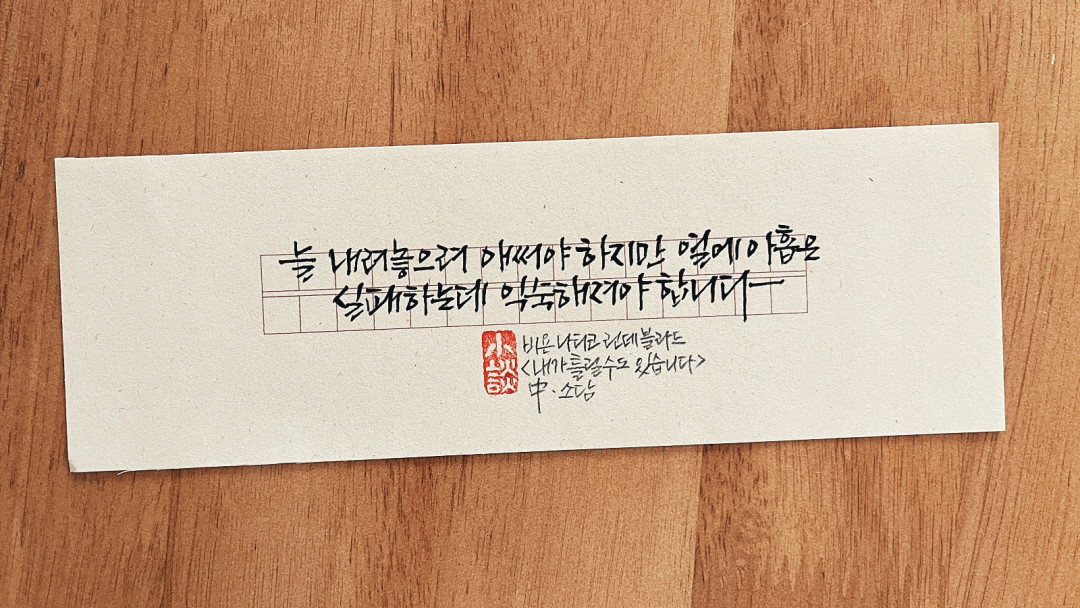 늘 내려놓으려 애써야 하지만 열에 아홉은
실패하는데 익숙해져야 합니다-
小談
비욘 나티코 린데블라드
<내가 틀릴 수도 있습니다>
中·소담